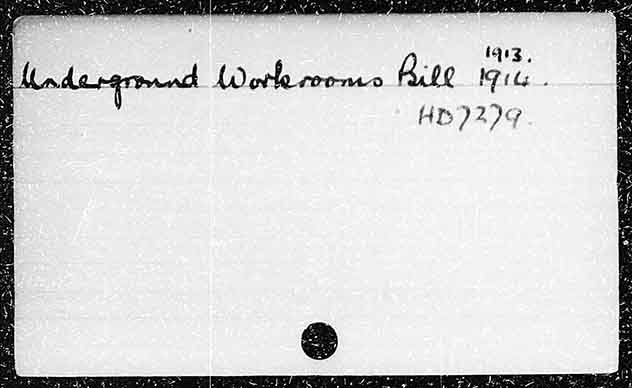 1913.
Underground Workrooms Bill 1914.
HD7279.